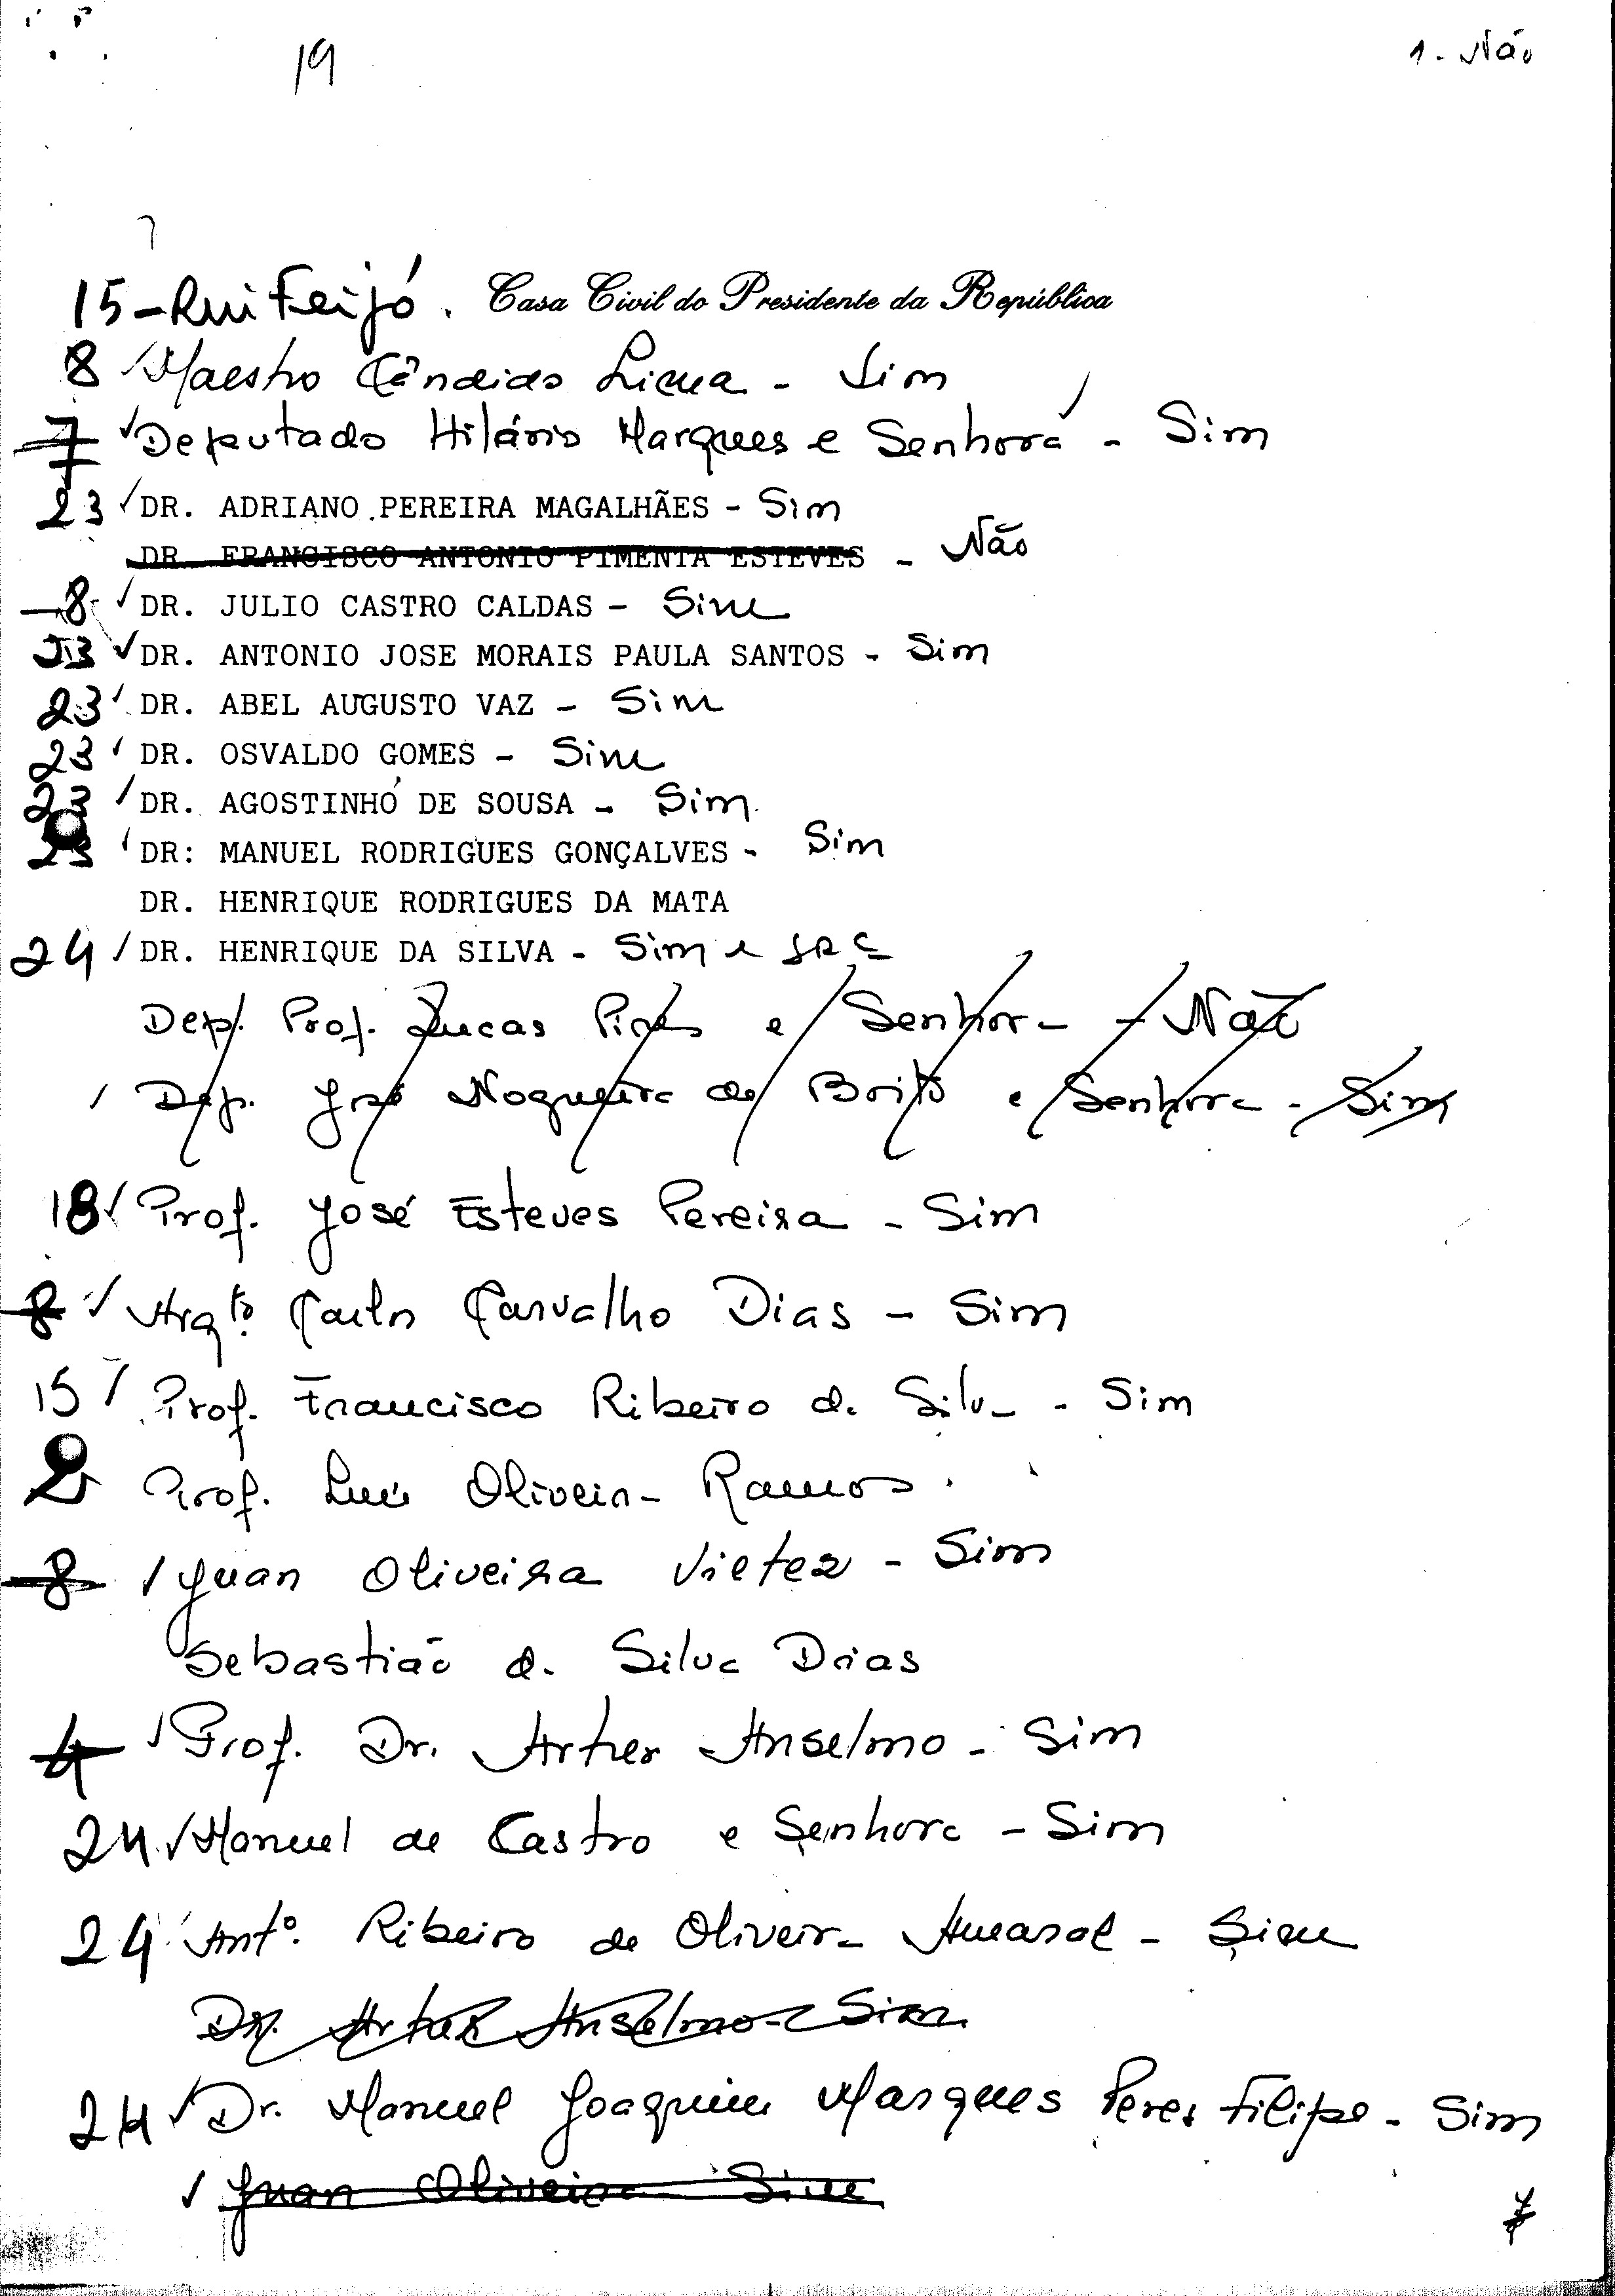 19
1 - Não
15 - Rui Feijó. Casa Civil do Presidente da República
8 Maestro Cândido Lima - Sim
7 Deputado Hilário Marques e Senhora - Sim
23 DR. ADRIANO PEREIRA MAGALHÃES - Sim
DR. FRANCISCO ANTONIO PIMENTA ESTEVES - Não
8 DR. JULIO CASTRO CALDAS - Sim
23 DR. ANTONIO JOSE MORAIS PAULA SANTOS - Sim
23 DR. ABEL AUGUSTO VAZ - Sim
23 DR. OSVALDO GOMES - Sim
23 DR. AGOSTINHO DE SOUSA - Sim
23 DR: MANUEL RODRIGUES GONÇALVES - Sim
DR. HENRIQUE RODRIGUES DA MATA
24 DR. HENRIQUE DA SILVA - Sim e
Dep. Prof. Lucas Pires e Senhora - Não
Dep. José Nogueira de Brito e Senhora - Sim
18 Prof. José Esteves Pereira - Sim
8 Arqto. Carlos Carvalho Dias - Sim
15 Prof. Francisco Ribeiro da Silva - Sim
2 Prof. Luís Oliveira Ramos.
8 Juan Oliveira Vietez - Sim
Sebastião da Silva Dias
4 Prof. Dr. Artur Anselmo - Sim
24 Manuel de Castro e Senhora - Sim
24 Antº. Ribeiro de Oliveira Amaral - Sim
Dr. Artur Anselmo - Sim
24 Dr. Manuel Joaquim Marques Peres Filipe - Sim
Juan Oliveira Sim
7